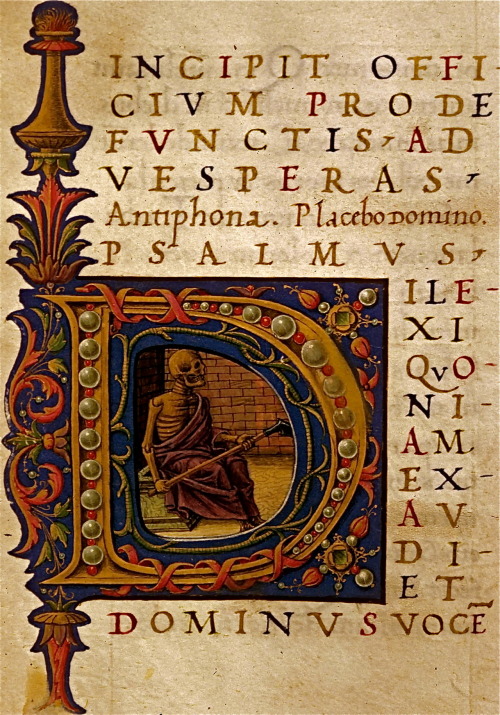 INCIPIT OFFI
CIVM PRO DE
FVNCTIS, AD
VESPERAS,
Antiphona. Placebo domino.
PSALMVS,
DILE-
XI
QVO-
NI-
AM
EX-
AV-
DI-
ET
DOMINVS VOCĒ